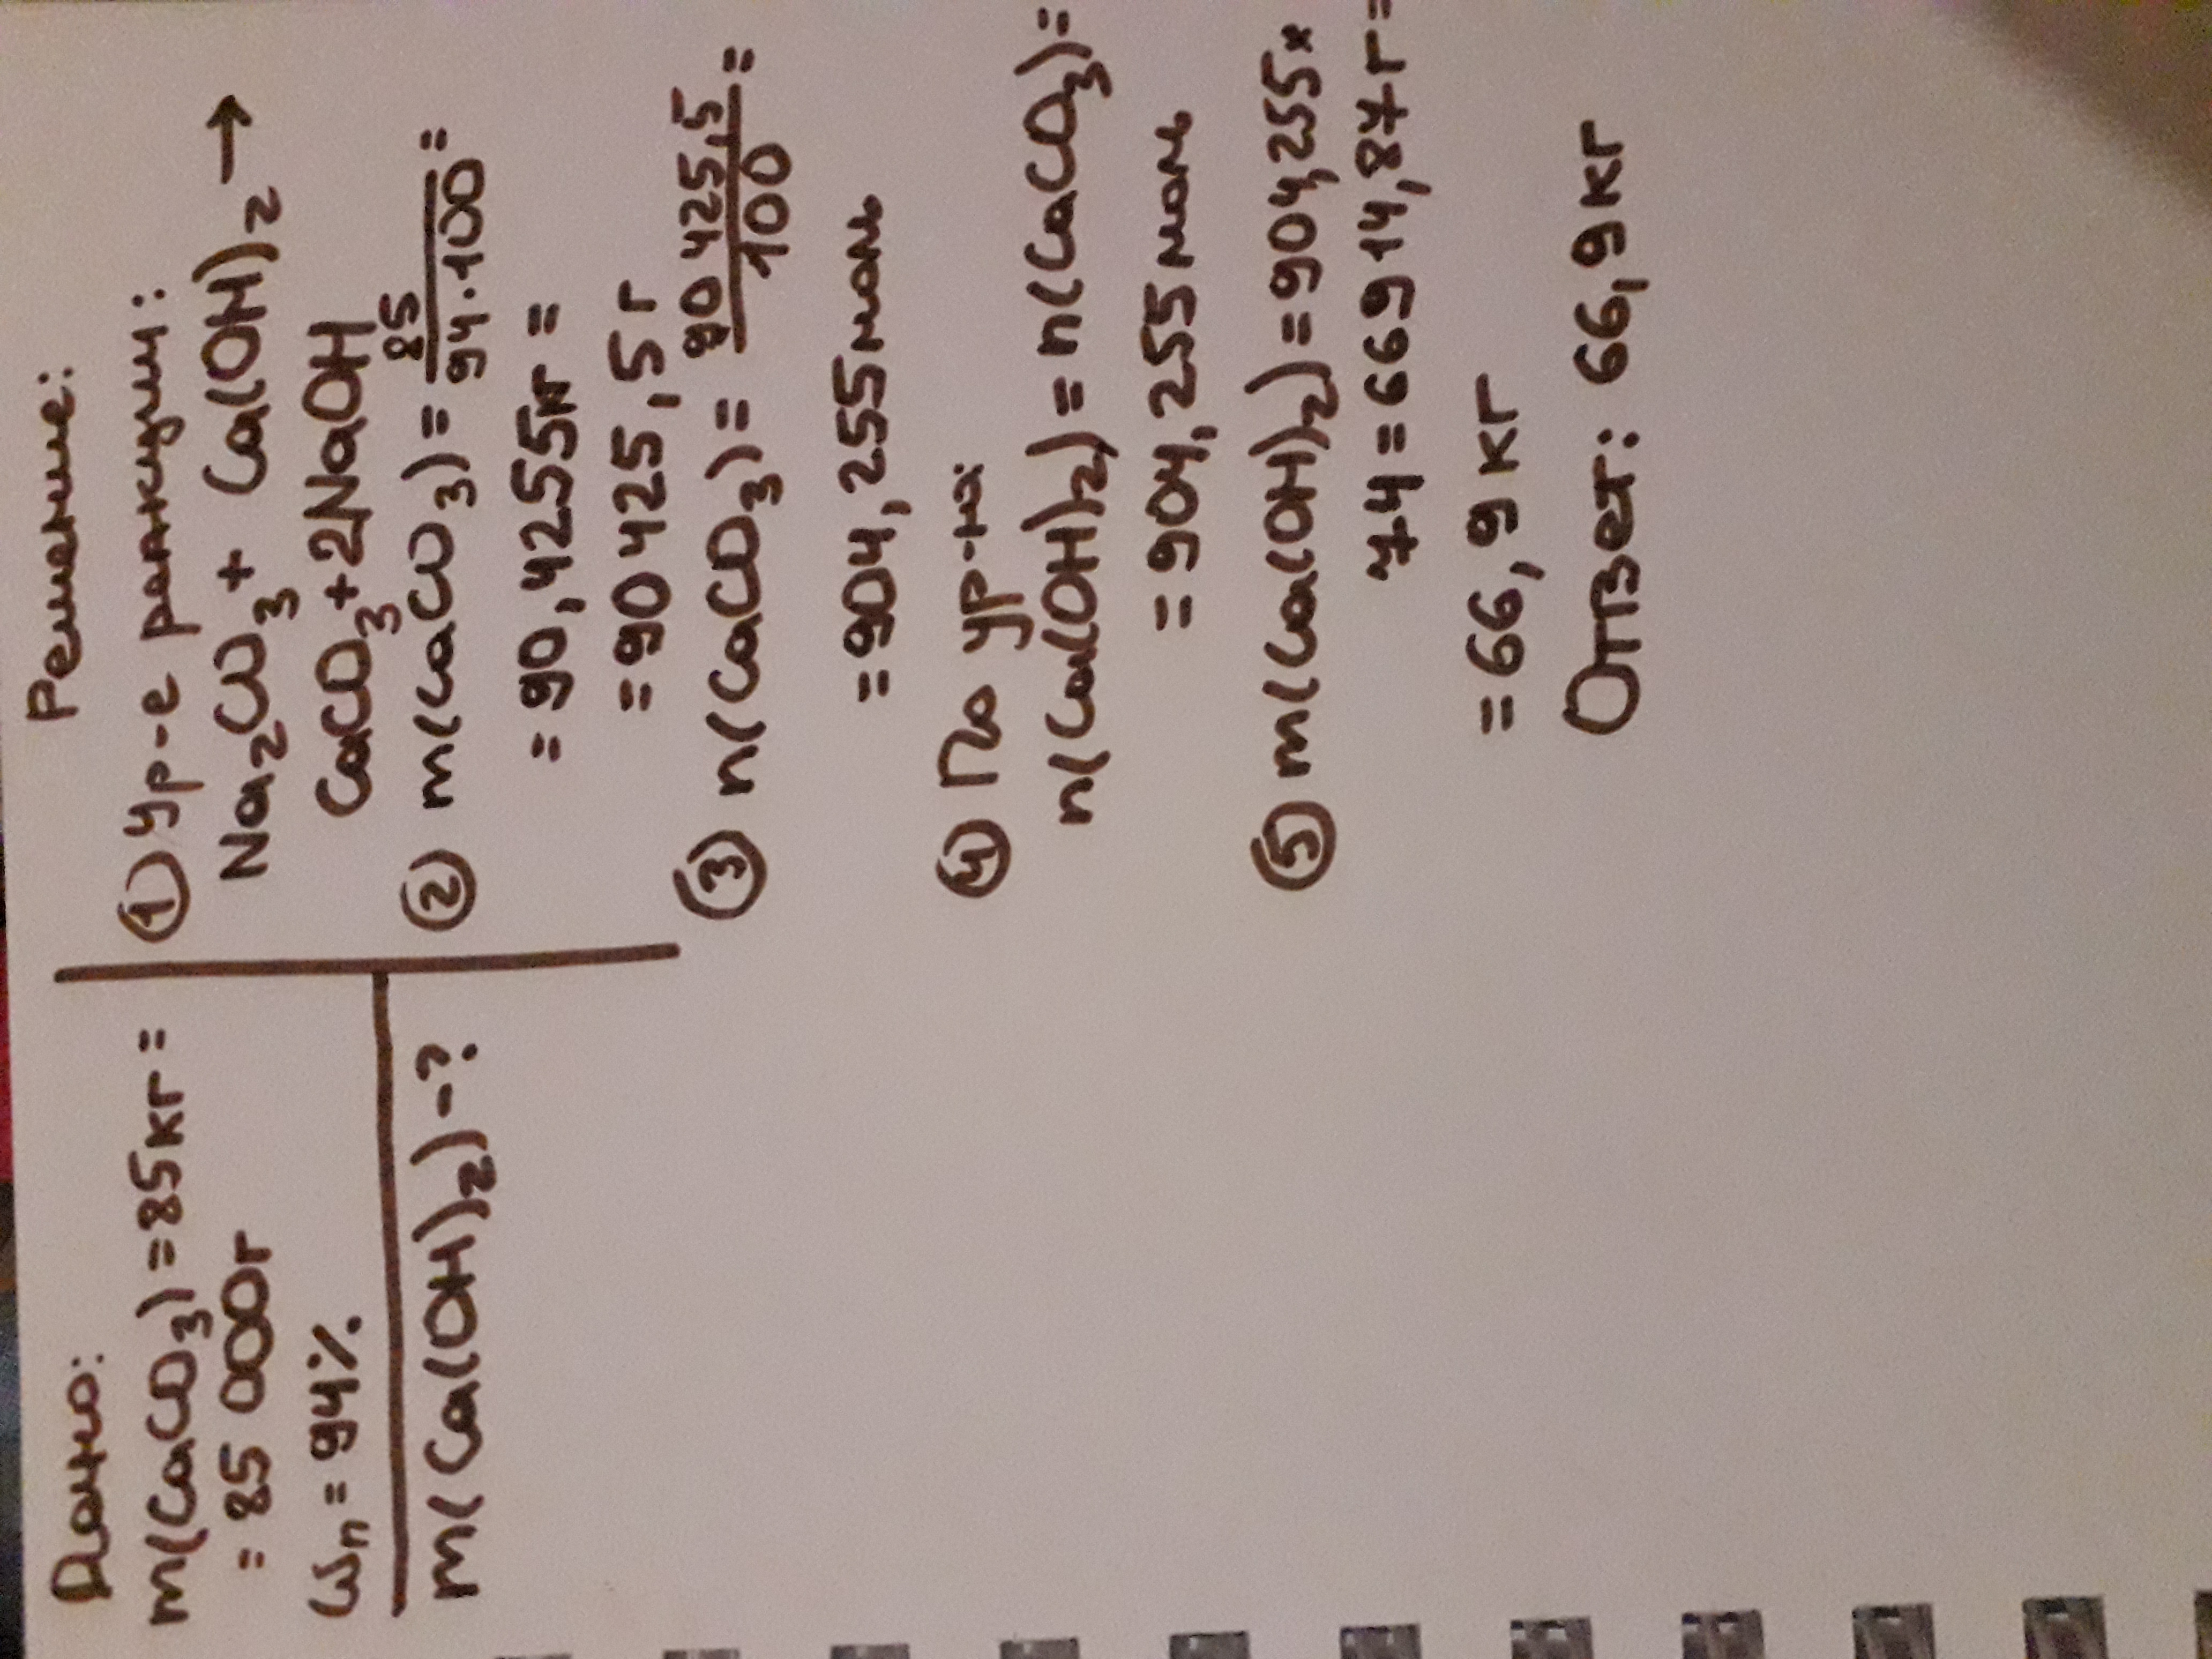 Дано:
m(CaCO3)=85кг=
= 85 000г
ωп = 94%
m(Ca(OH)2)-?
Решение:
① Ур-е реакции:
Na2CO3 + Ca(OH)2 →
CaCO3+2NaOH
② m(CaCO3) = 85/94·100 =
= 90,4255кг =
= 90 425,5 г
③ n(CaCO3) = 90 425,5/100 =
= 904,255 моль
④ По ур-ю:
n(Ca(OH)2) = n(CaCO3)=
= 904,255 моль
⑤ m(Ca(OH)2)=904,255×
74=66914,87г=
=66,9 кг
Ответ: 66,9кг